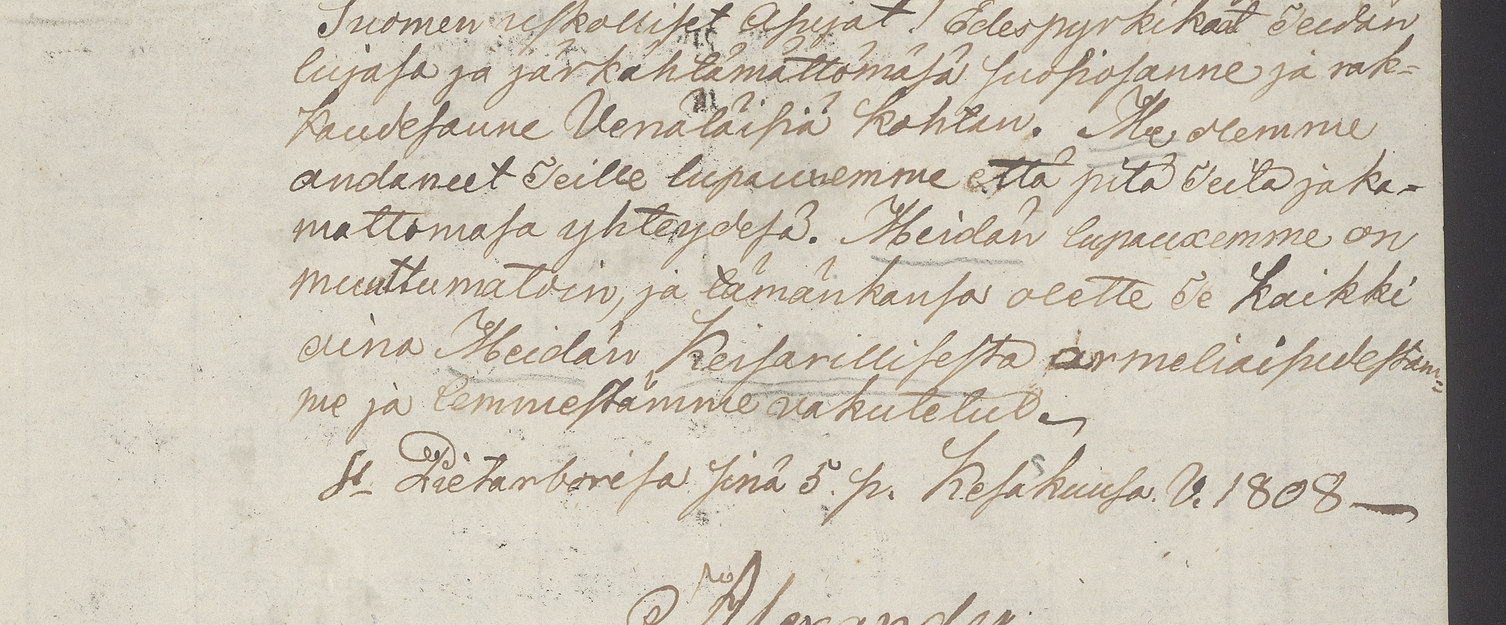 Suomen uskolliset Asujat! Edespyrkikäät Teidän
lujasa ja järkähtämättömäsä suosiosanne ja rak-
kaudesanne Venäläisiä kohtan. Me olemme
andaneet Teille lupauxemme että pitä Teitä jaka-
mattomasa yhteydesä. Meidän lupauxemme on
muuttumatoin, ja tämänkansa olette Te kaikki
aina Meidän Keisarillisesta armeliaisudestam-
me ja lemmestämme vakutetut.
St Pietarborisa sinä 5. p. Kesäkuusa V. 1808 —
Alexander.